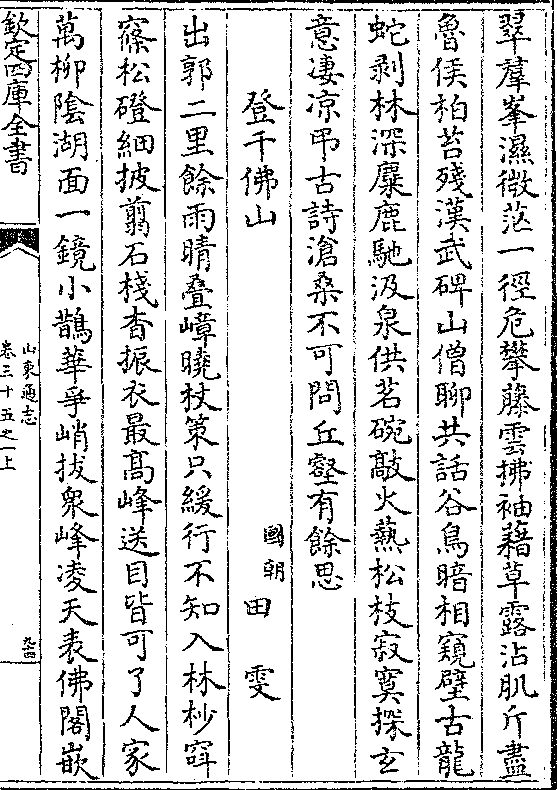 翠羣峯濕微茫一徑危攀藤雲拂袖藉草露沾肌斤盡
魯侯柏苔殘漢武碑山僧聊共話谷鳥暗相窺壁古龍
蛇剥林深麋鹿馳汲泉供茗碗敲火爇松枝寂寞探玄
意凄凉弔古詩滄桑不可問丘壑有餘思
登千佛山
國朝 田雯
出郭二里餘雨晴叠嶂曉杖策只緩行不知入林杪窅
窱松磴細披翦石棧杳振衣最高峰送目皆可了人家
萬柳陰湖面一鏡小鵲華爭峭拔衆峰凌天表佛閣嵌
欽定四庫全書
山東通志
卷三十五之一上